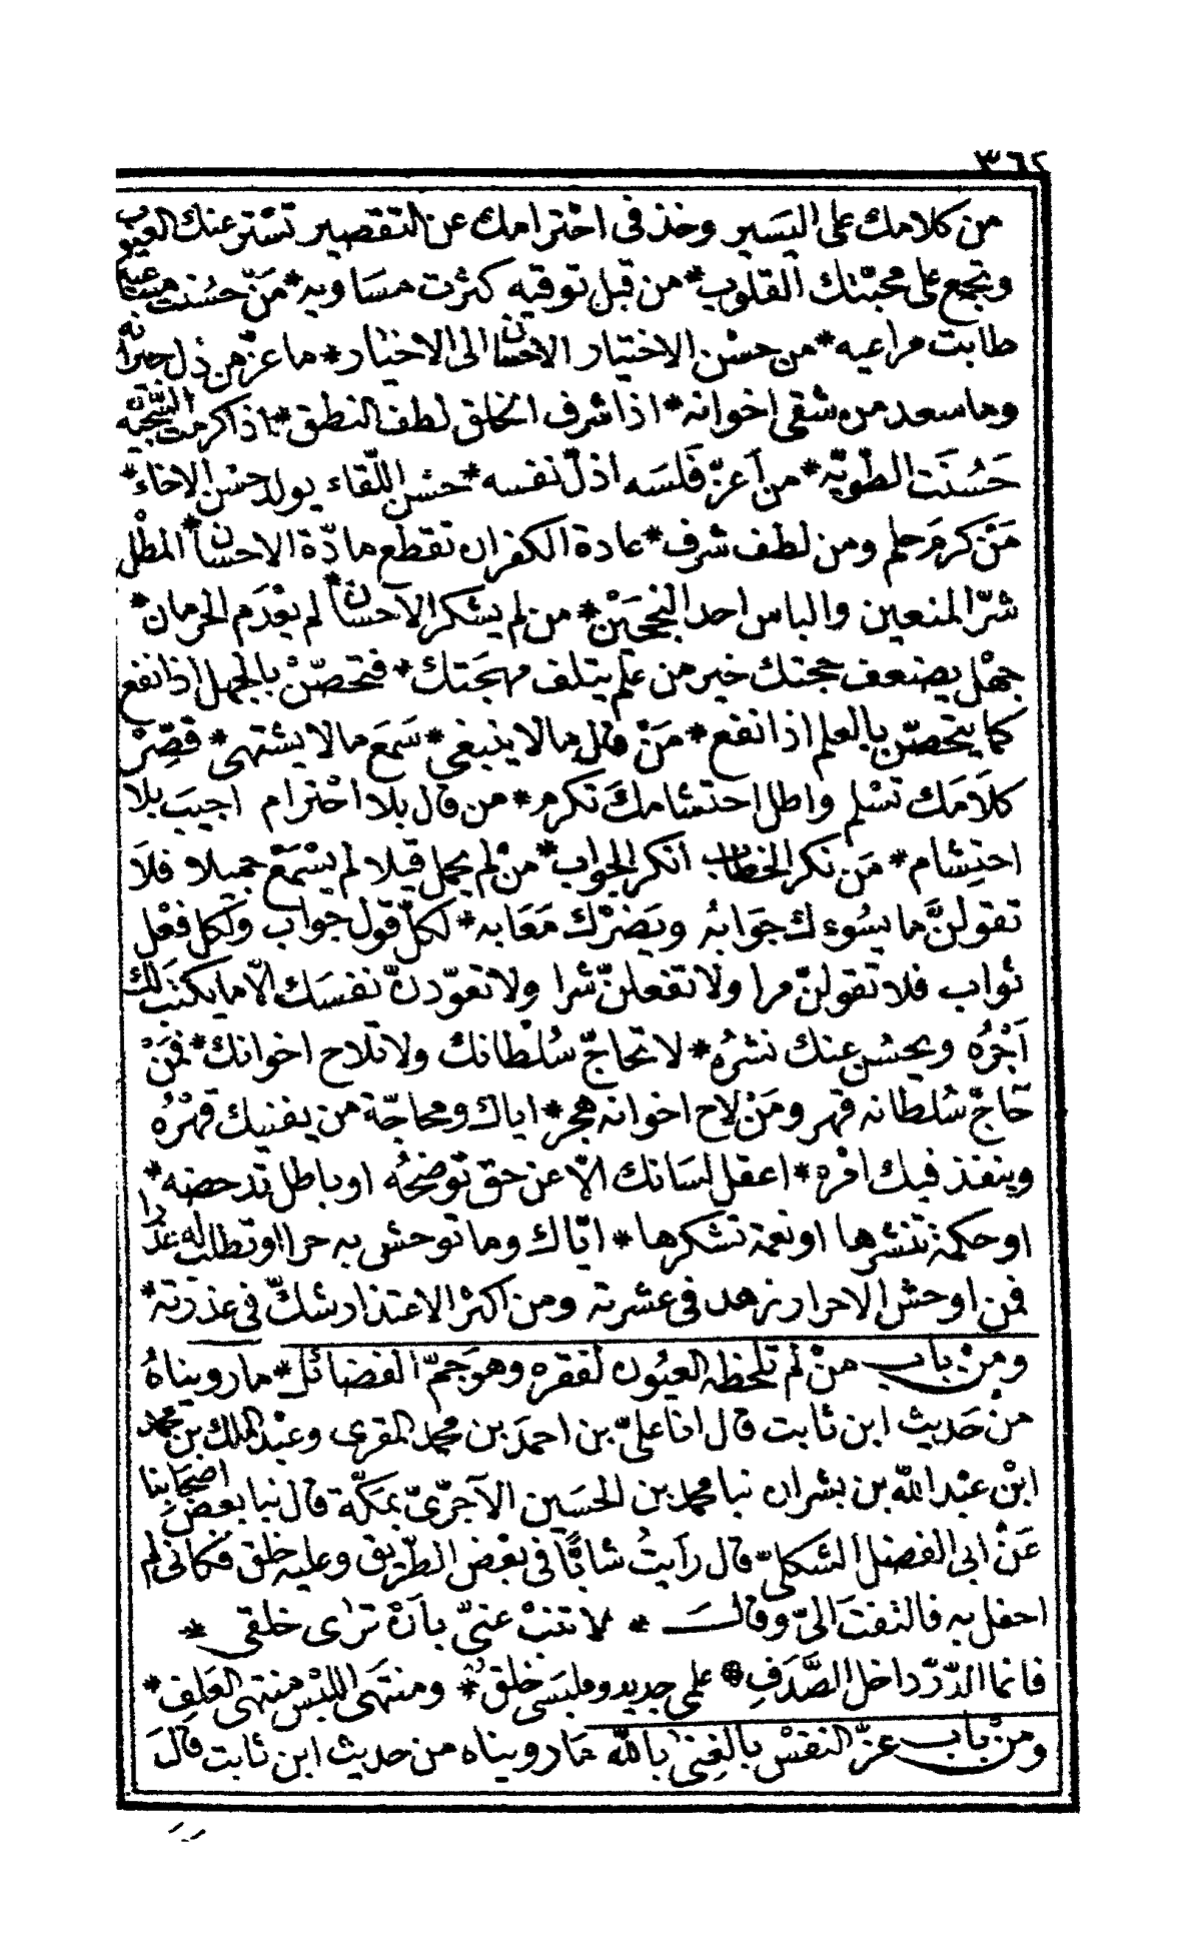 ٣٦٢
من كلامك على اليسير وخذ فى احترامك عن التقصير تستر عنك العيوب
وتجمع على محبتك القلوب * من قبل توقيه كثرت مساويه * مَنّ حسُنت مساعيه
طابت مراعيه * من حسْن الاختيار الاحسان الى الاخيار * ما عزّ من ذل جيرانه
وما سعد من شقى إخوانه * اذا شرف الخلق لطف النطق * اذا كرمت السّجيّة
حَسُنَت الطّويّه * من أعزّ فَلسَه اذلّ نفسه * حسْن اللّقاء يولد حسْن الاخاء *
مَنْ كرمَ حلم ومن لطف شرف * عادة الكفران تقطع مادّة الاحسان * المطْل
شرّ المنعين والياس احد النجحَيْن * من لم يشكر الاحسان * لم يعْدَم الحرمان *
جهْل يضعف حجتك خير من علم يتلف مهجَتك * فتحصّنْ بالجهل اذا نفع
كما يتحصّن بالعلم اذا نفع * مَنْ قال ما لا ينبغى * سَمَع ما لا يشتهى * قصِّرْ
كلاَمَك تسْلم واطل احتشامكَ تكرم * من قال بلا احْترام اجيبَ بلا
احتِشام * مَن نكر الخطاب انكر الجواب * منْ لم يجمل قيلا لم يسْمَعْ جميلا فلاَ
تقولنَّ ما يسُوءك جوَابهُ ويَضرّك مَعَابه * لكلّ قول جوَاب ولكل فعْل
ثواب فلا تقولنّ مرا ولا تفعلنّ شرا ولا تعوّدنّ نفسَك الاّ ما يكتبُ لك
أجْرُه ويحسُن عنك نشرُه * لا تحاجّ سُلْطانك ولا تلاح اخوانك * فمَنْ
حَاجّ سُلطانه قهر ومَنْ لاح اخوانه هجر * اياك ومحاجّة من يفنيك قهْرُه
وينفذ فيك امْره * اعقل لسَانك الاّ عن حق توضحُه او باطل تدحضه *
او حكمة تنشرها او نعمة تشكرها * ايّاك وما توحش به حرا او تطلب له عذرا
فمن اوحش الاحرار زهد فى عشرته ومن اكثر الاعتذار شكّ فى عذرته *
ومنْ باب منْ لم تلحظه العيُون لفقره وهو جَمّ الفضائل * ما رويناهُ
من حَديث ابن ثابت قال انا علىّ بن احمَد بن محمد المقرى وعبْد الملك بن محمد
ابْن عبْد الله بن بشران نبا محمد بن الحسَين الآجرّىّ بمكّة قال نبا بعض اصحابنا
عَنْ ابى الفضل الشكلىّ قال رأيتُ شابًّا فى بعْض الطّريق وعليه خلق فكانى لم
احفل به فالتفتَ الىّ وقالــ * لا تنبْ عنىّ بأنْ ترٰى خلقى *
فانما الدّرّ داخل الصَّدَفِ * علمى جديد وملبَسى خلقٌ * ومنتهَى اللبْس منتهى الصَلفِ *
ومنْ باب عزّ النفسْ بالغِنىٰ بالله مَا رويناه من حديث ابن ثابت قالَ